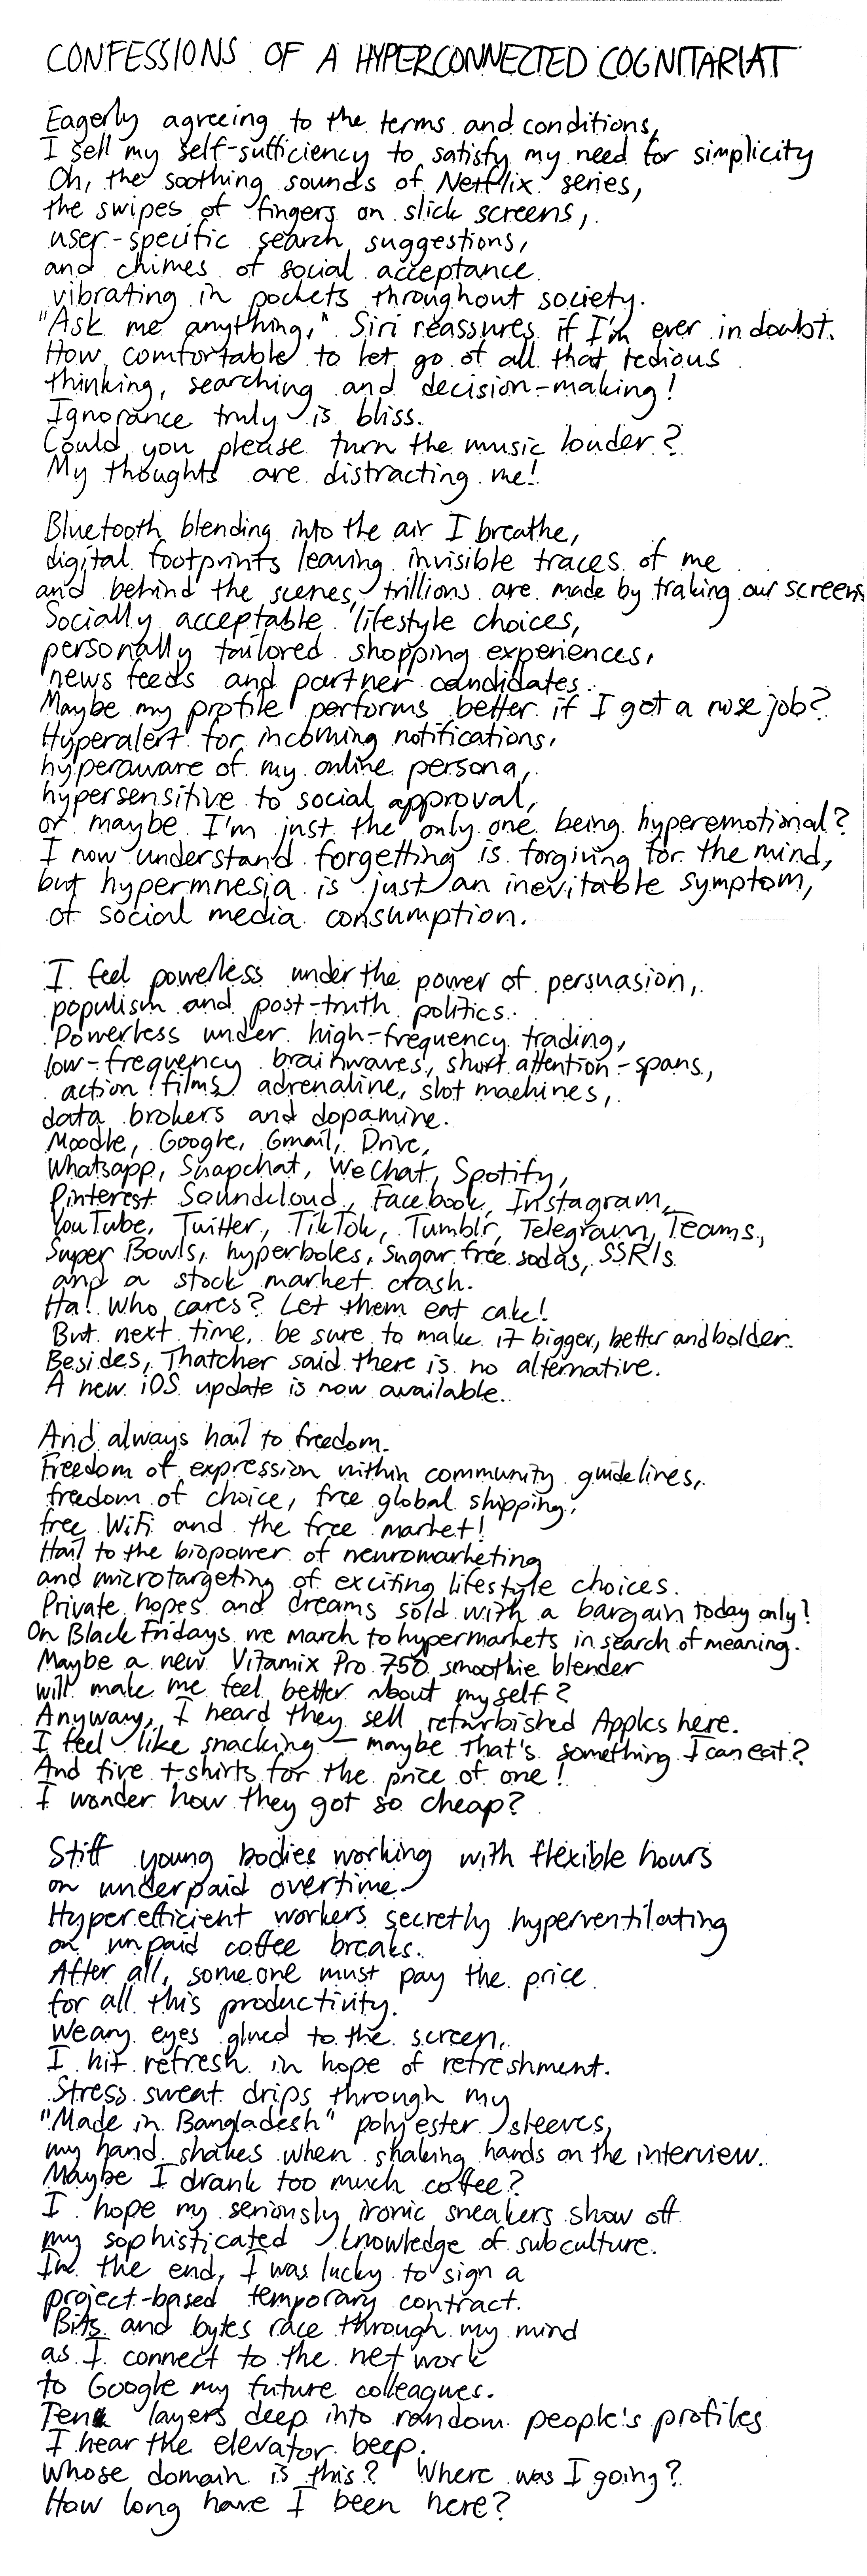 CONFESSIONS OF A HYPERCONNECTED COGNITARIAT
Eagerly agreeing to the terms and conditions,
I sell my self-sufficiency to satisfy my need for simplicity
Oh, the soothing sounds of Netflix series,
the swipes of fingers on slick screens,
user-specific search suggestions,
and chimes of social acceptance
vibrating in pockets throughout society.
"Ask me anything," Siri reassures if I'm ever in doubt.
How comfortable to let go of all that tedious
thinking, searching and decision-making!
Ignorance truly is bliss.
Could you please turn the music louder?
My thoughts are distracting me!
Bluetooth blending into the air I breathe,
digital footprints leaving invisible traces of me
and behind the scenes, trillions are made by traking our screens
Socially acceptable lifestyle choices,
personally tailored shopping experiences,
news feeds and partner candidates.
Maybe my profile performs better if I get a nose job?
Hyperalert for incoming notifications,
hyperaware of my online persona,
hypersensitive to social approval,
or maybe I'm just the only one being hyperemotional?
I now understand forgetting is forgiving for the mind,
but hypermnesia is just an inevitable symptom,
of social media consumption.
I feel powerless under the power of persuasion,
populism and post-truth politics.
Powerless under high-frequency trading,
low-frequency brainwaves, short attention-spans,
action films, adrenaline, slot machines,
data brokers and dopamine.
Moodle, Google, Gmail, Drive,
Whatsapp, Snapchat, WeChat, Spotify,
Pinterest Soundcloud, Facebook, Instagram,
YouTube, Twitter, TikTok, Tumblr, Telegram, Teams,
Super Bowls, hyperboles, sugar free sodas, SSRIs
and a stock market crash.
Ha! Who cares? Let them eat cake!
But next time, be sure to make it bigger, better and bolder.
Besides, Thatcher said there is no alternative.
A new iOS update is now available.
And always hail to freedom.
Freedom of expression within community guidelines,
freedom of choice, free global shipping,
free WiFi and the free market!
Hail to the biopower of neuromarketing
and microtargeting of exciting lifestyle choices.
Private hopes and dreams sold with a bargain today only!
On Black Fridays we march to hypermarkets in search of meaning.
Maybe a new Vitamix Pro 750 smoothie blender
will make me feel better about myself?
Anyway, I heard they sell refurbished Apples here.
I feel like snacking – maybe that's something I can eat?
And five t-shirts for the price of one!
I wonder how they got so cheap?
Stiff young bodies working with flexible hours
on underpaid overtime.
Hyperefficient workers secretly hyperventilating
on unpaid coffee breaks.
After all, someone must pay the price
for all this productivity.
Weary eyes glued to the screen,
I hit refresh in hope of refreshment.
Stress sweat drips through my
"Made in Bangladesh" polyester sleeves,
my hand shakes when shaking hands on the interview.
Maybe I drank too much coffee?
I hope my seriously ironic sneakers show off
my sophisticated knowledge of subculture.
In the end, I was lucky to sign a
project-based temporary contract.
Bits and bytes race through my mind
as I connect to the network
to Google my future colleagues.
Ten layers deep into random people's profiles
I hear the elevator beep.
Whose domain is this? Where was I going?
How long have I been here?